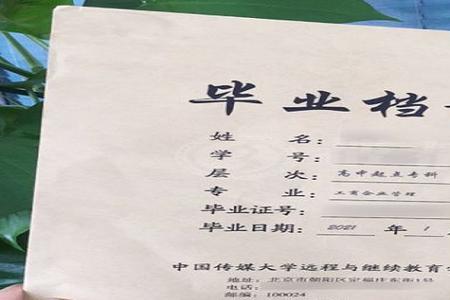 毕业档
姓名：
学号：
层次：高中起点专科
专业：工商企业管理
毕业证号：
毕业日期：2021 年 1
中国传媒大学远程与继续教育
地址：北京市朝阳区定福庄东街1号
电话：
邮编：100024